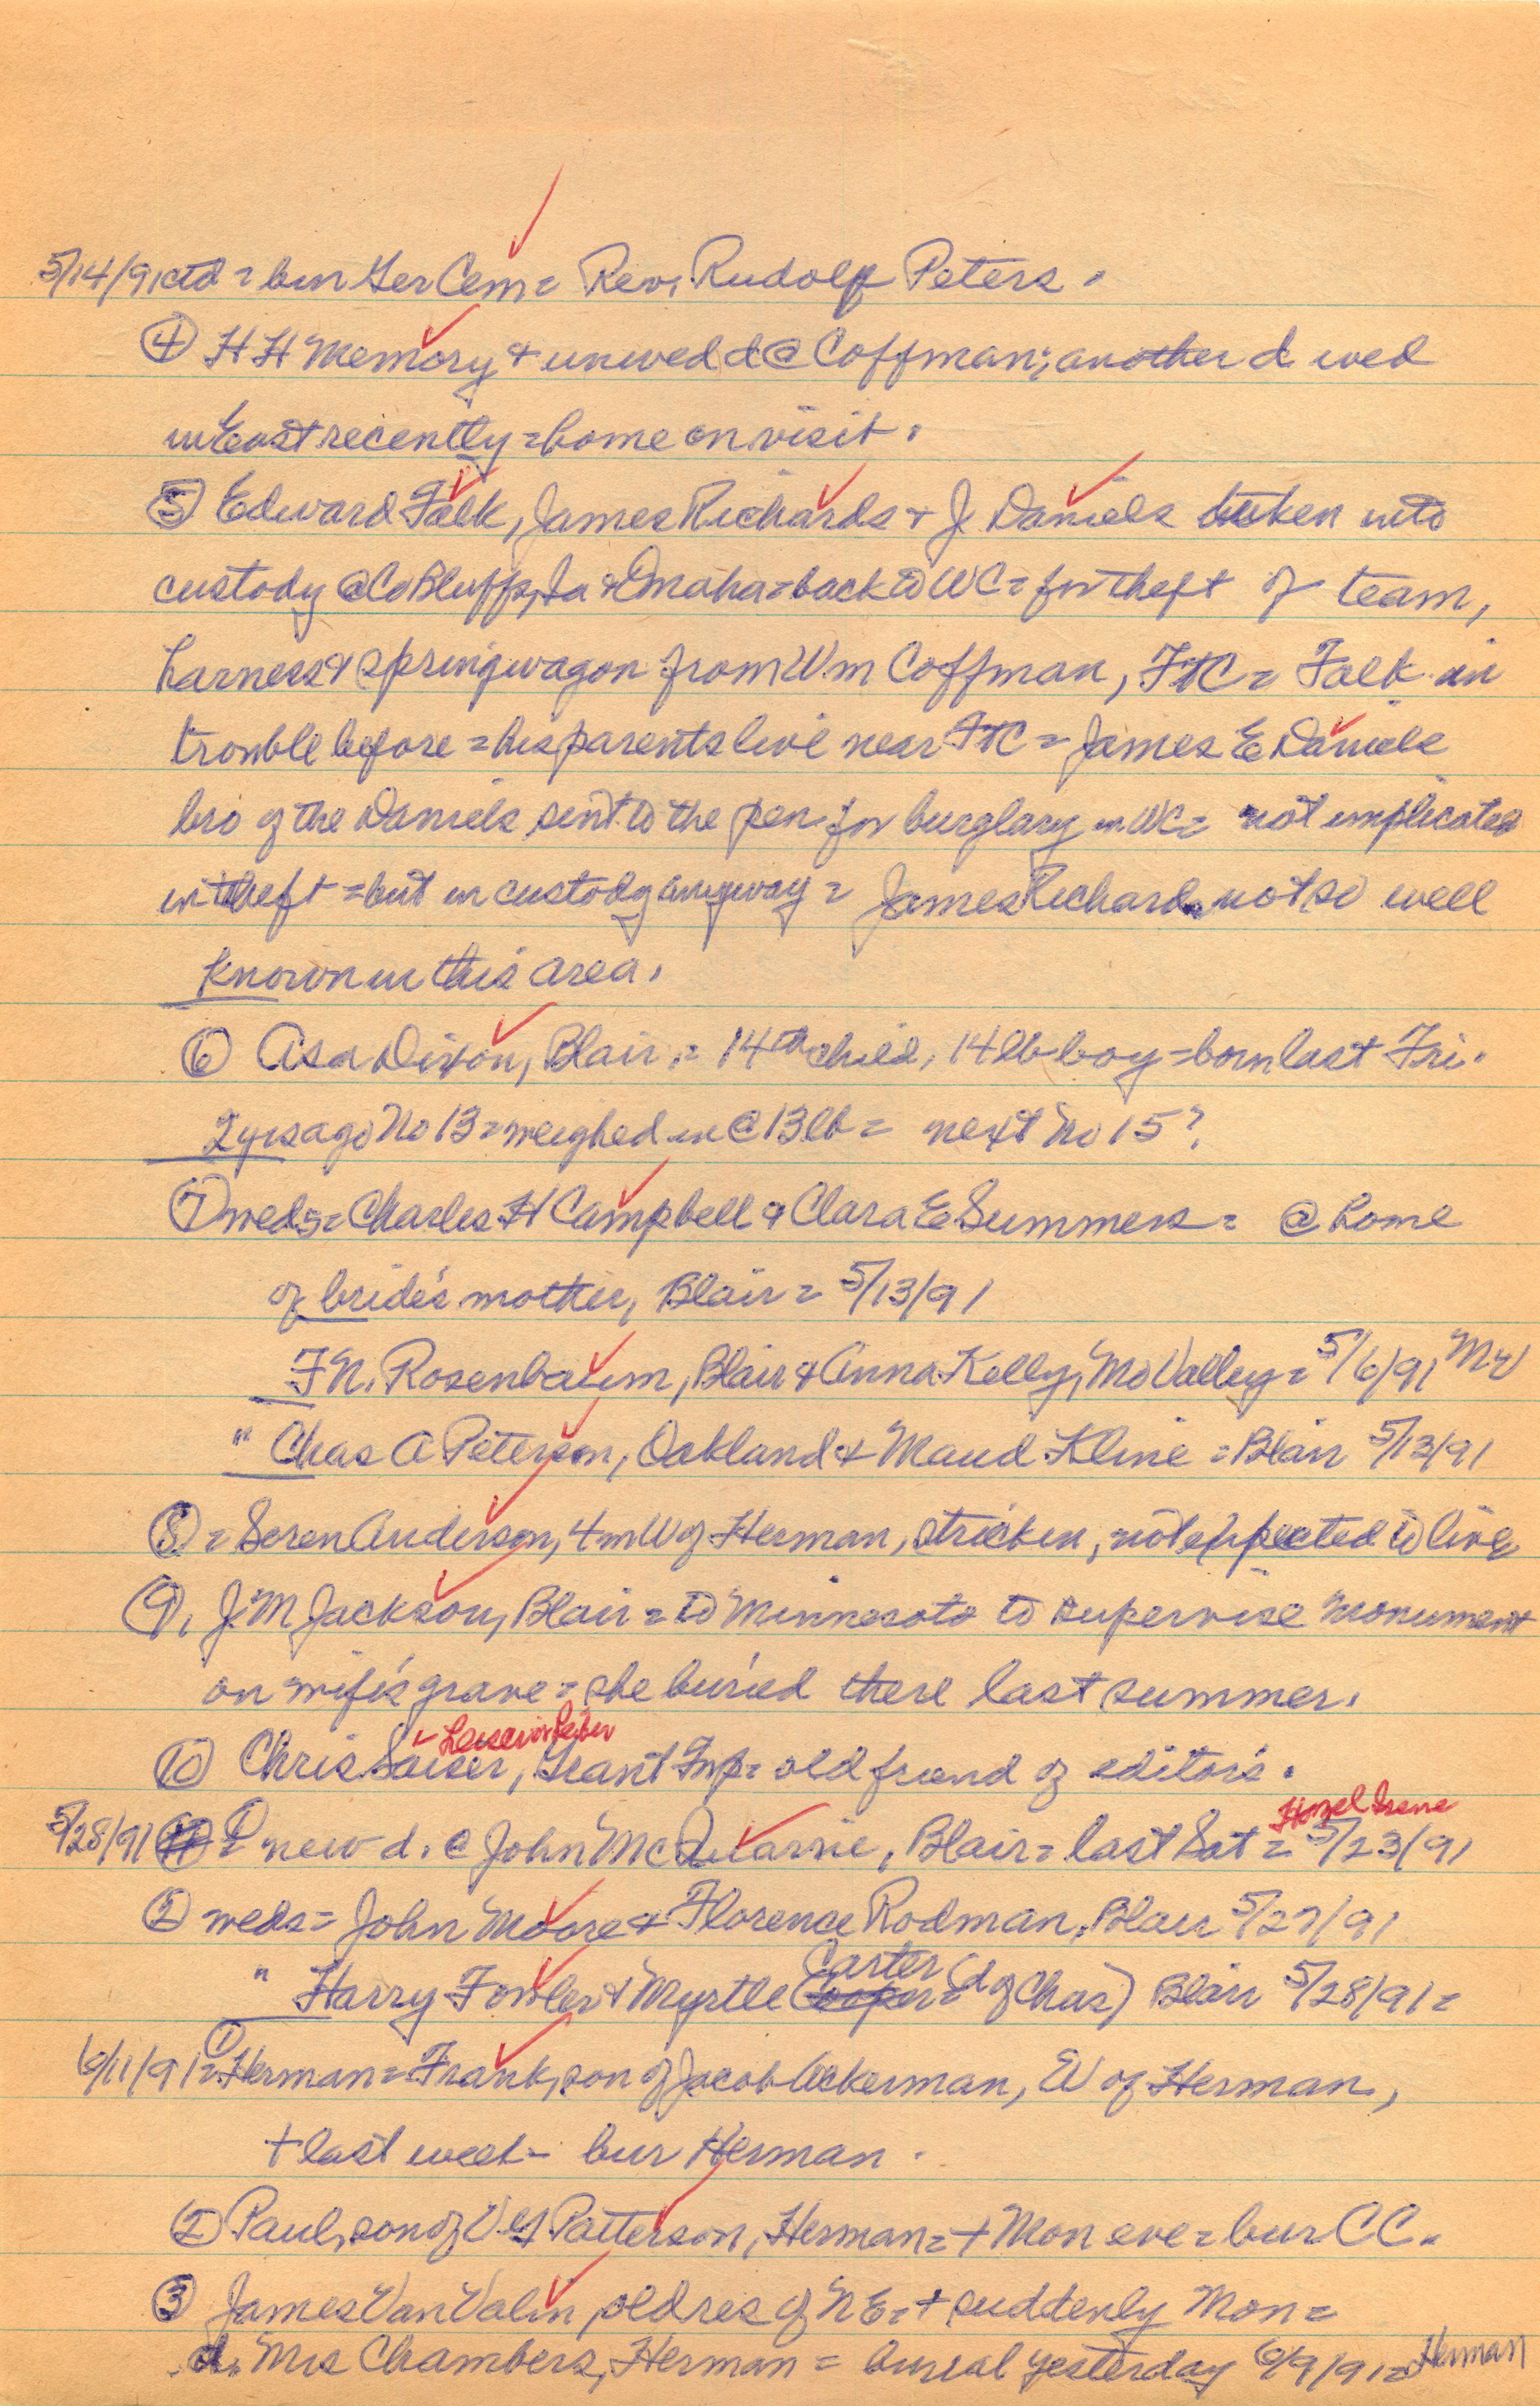 5/14/91ctd = bur Ger Cem = Rev. Rudolf Peters.
④ H H Memory & unwed d @ Coffman; another d wed
in East recently = home on visit.
⑤ Edward Falk, James Richards & J. Daniels taken into
custody @ Co Bluffs, Ia & Omaha = back to WC = for theft of team,
harness & spring wagon from Wm Coffman, FtC = Falk in
trouble before = his parents live near FtC = James E Daniels
bro of the Daniels sent to the pen for burglary in WC = not implicated
in theft = but in custody anyway = James Richards not so well
known in this area.
⑥ Asa Dixon, Blair, = 14th child, 14 lb boy = born last Fri.
2 yrs ago No 13 = weighed in @ 13 lb = next No 15?
⑦ weds = Charles H Campbell & Clara E Summers = @ home
of bride's mother, Blair = 5/13/91
F N. Rosenbaum, Blair & Anna Kelly, Mo Valley = 5/6/91 MV
" Chas A Peterson, Oakland & Maud Kline = Blair 5/13/91
⑧ = Soren Anderson, 4 m W of Herman, stricken, not expected to live
⑨. J. M Jackson, Blair = to Minnesota to supervise monument
on wife's grave = she buried there last summer.
Leiser or Leiber
⑩ Chris Saiser, Grant Twp = old friend of editor's.
Hazel Irene
5/28/91 ① = new d. @ John McQuarrie, Blair = last Sat = 5/23/91
② weds = John Moore & Florence Rodman, Blair 5/27/91
" Harry Fowler & Myrtle Cooper Carter = (d of Chas) Blair 5/28/91 =
6/11/91 = ① Herman = Frank, son of Jacob Ackerman, W of Herman,
+ last week - bur Herman.
② Paul, son of Patterson, Herman = + Mon eve = bur CC.
③ James Van Valin, old res of NE = + suddenly Mon =
d. Mrs Chambers, Herman = burial yesterday 6/9/91 = Herman